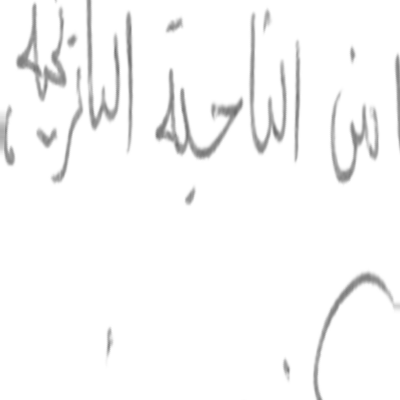 من الناحية التاريخية،